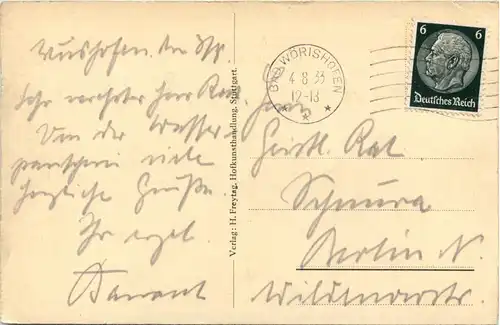 Sehr verehrter Herr Rat,
Von der Wasser-
panscherei viele
herzliche Grüße.
Ihr ergeb.
Verlag: H. Freytag, Hofkunsthandlung, Stuttgart.
BAD WÖRISHOFEN
4.8.33
12-13
6 6
Deutsches Reich
Herrn
Geistl. Rat
Schnura
Berlin N.